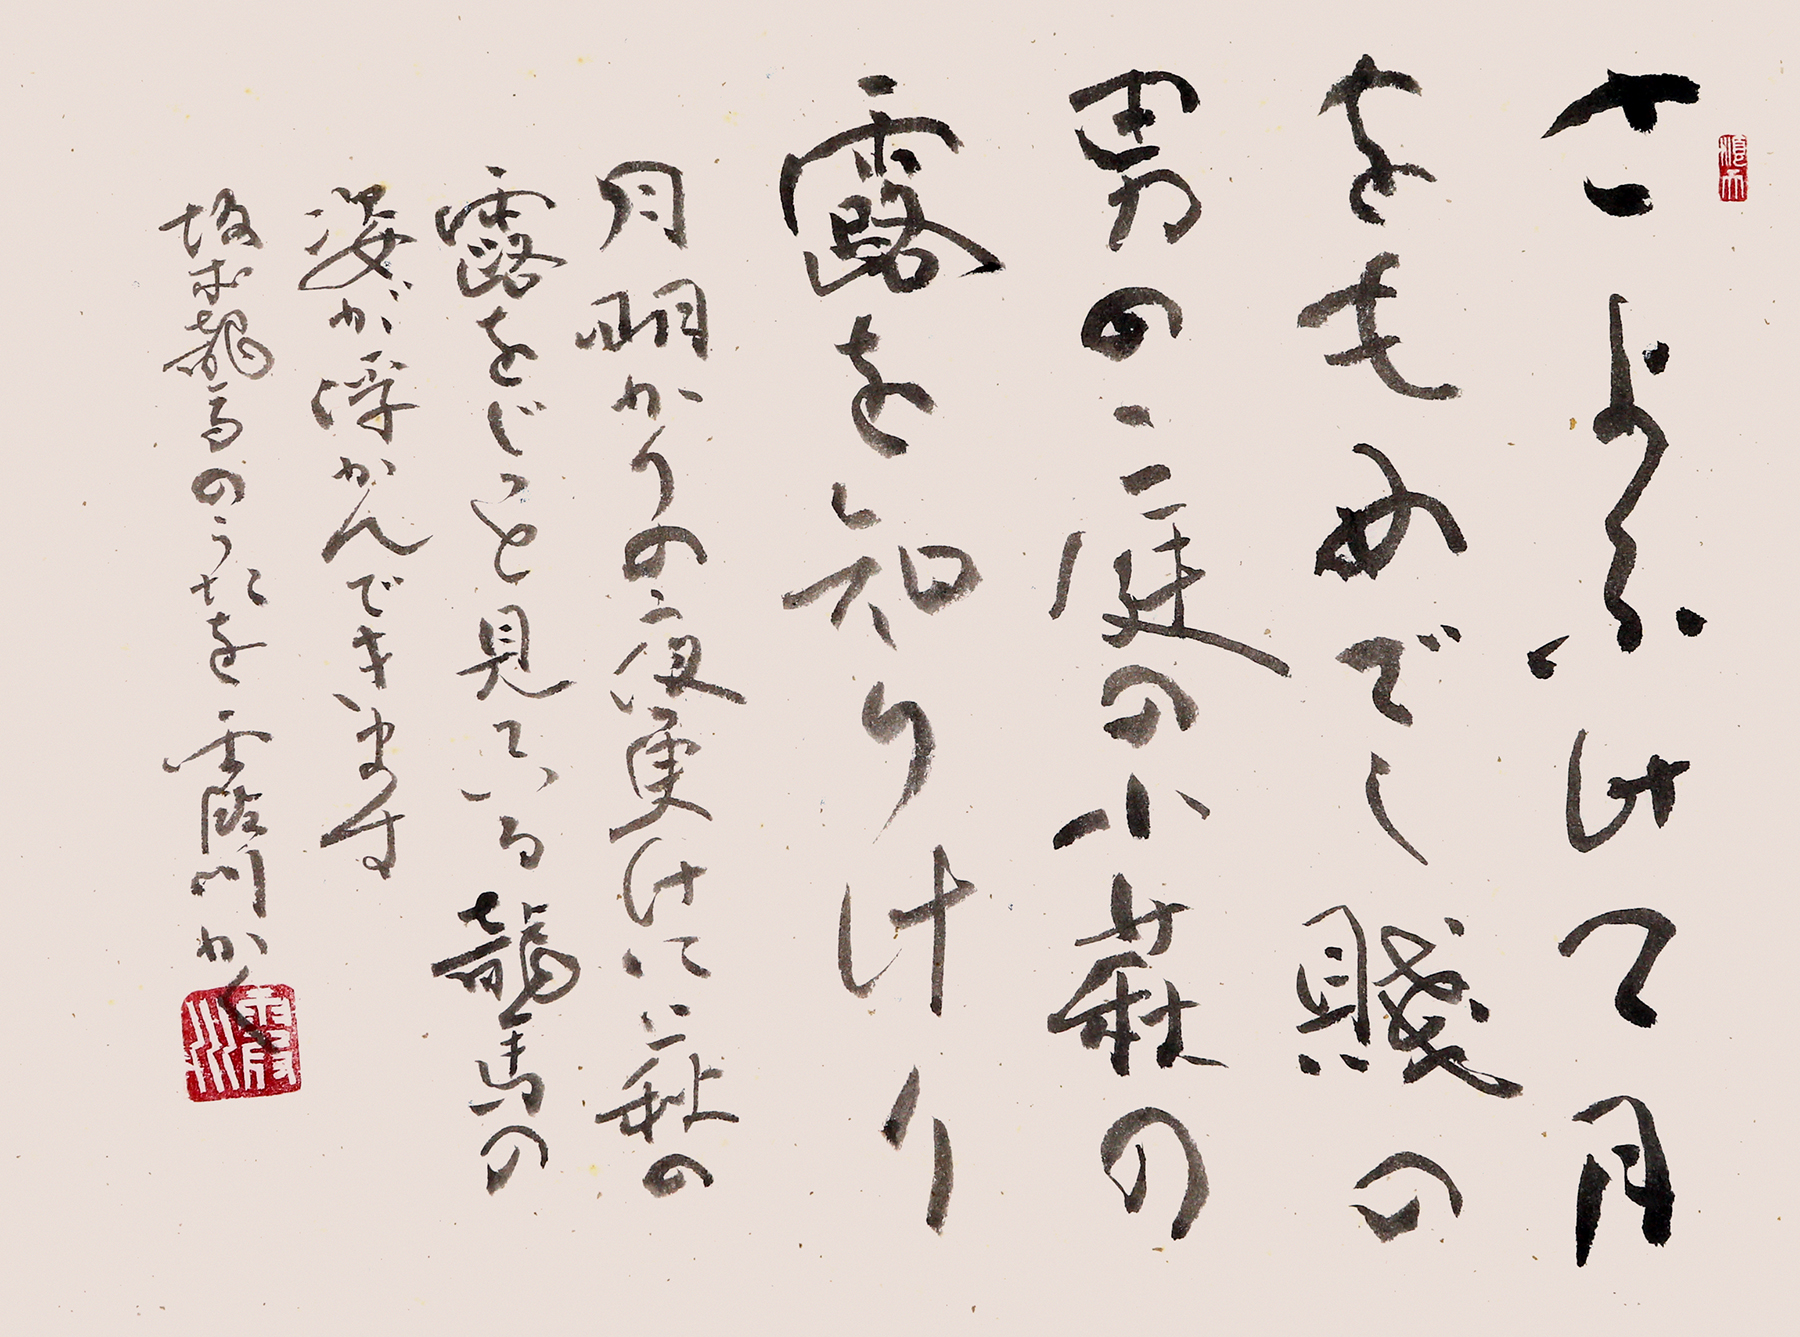 さよふけて月
をもめでし賤の
男の庭の小萩の
露を知りけり
月明かりの夜更けに萩の
露をじっと見ている龍馬の
姿が浮かんできます
坂本龍馬のうたを 霞川かく
霞川